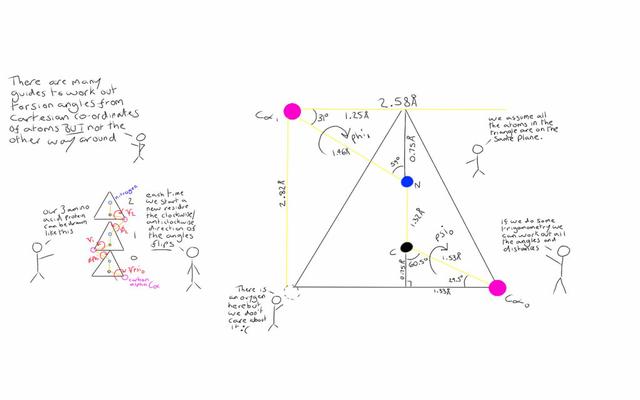 There are many
guides to work out
torsion angles from
Cartesian co-ordinates
of atoms BUT not the
other way around
our 3 amino
acid protein
can be drawn
like this
nitrogen
2
1
0
carbon
alpha Cα
each time
we start a
new residue
the clockwise/
anticlockwise
direction of
the angles
flips
2.58Å
Cα₁
31°
1.25Å
phi₁
1.46Å
59°
0.75Å
N
2.82Å
1.32Å
C
psi₀
60.5°
1.53Å
0.75Å
29.5°
1.33Å
Cα₀
we assume all
the atoms in the
triangle are on the
same plane.
if we do some
trigonometry we
can work out all
the angles and
distances
There is
an oxygen
here but
we don't
care about
it :(